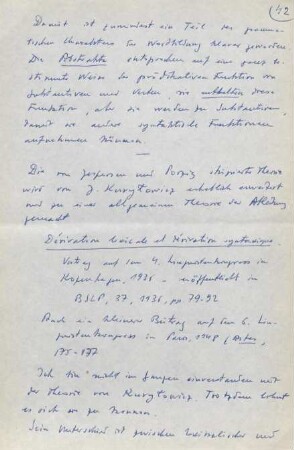 42
Damit ist zumindest ein Teil des gramma-
tischen Charakters der Wortbildung klarer geworden.
Die Abstrakta entsprechen auf eine ganz be-
stimmte Weise der prädikativen Funktion von
Substantiven und Verben, sie enthalten diese
Funktion, aber sie werden zu Substantiven,
damit sie andere syntaktische Funktionen
aufnehmen können.
Die von Jespersen und Porzig skizzierte Theorie
wird von J. Kuryłowicz erheblich erweitert
und zu einer allgemeinen Theorie der Ableitung
gemacht
Dérivation lexicale et dérivation syntaxique
Vortrag auf dem 4. Linguistenkongress in
Kopenhagen, 1936 - veröffentlicht in
BSLP, 37, 1936, pp 79-92
Auch ein kleinerer Beitrag auf dem 6. Lin-
guistenkongress in Paris, 1948 (Actes,
175-177
Ich bin nicht im Ganzen einverstanden mit
der Theorie von Kuryłowicz. Trotzdem lohnt
es sich sie zu kennen.
Sein Unterschied ist zwischen lexikalischer und